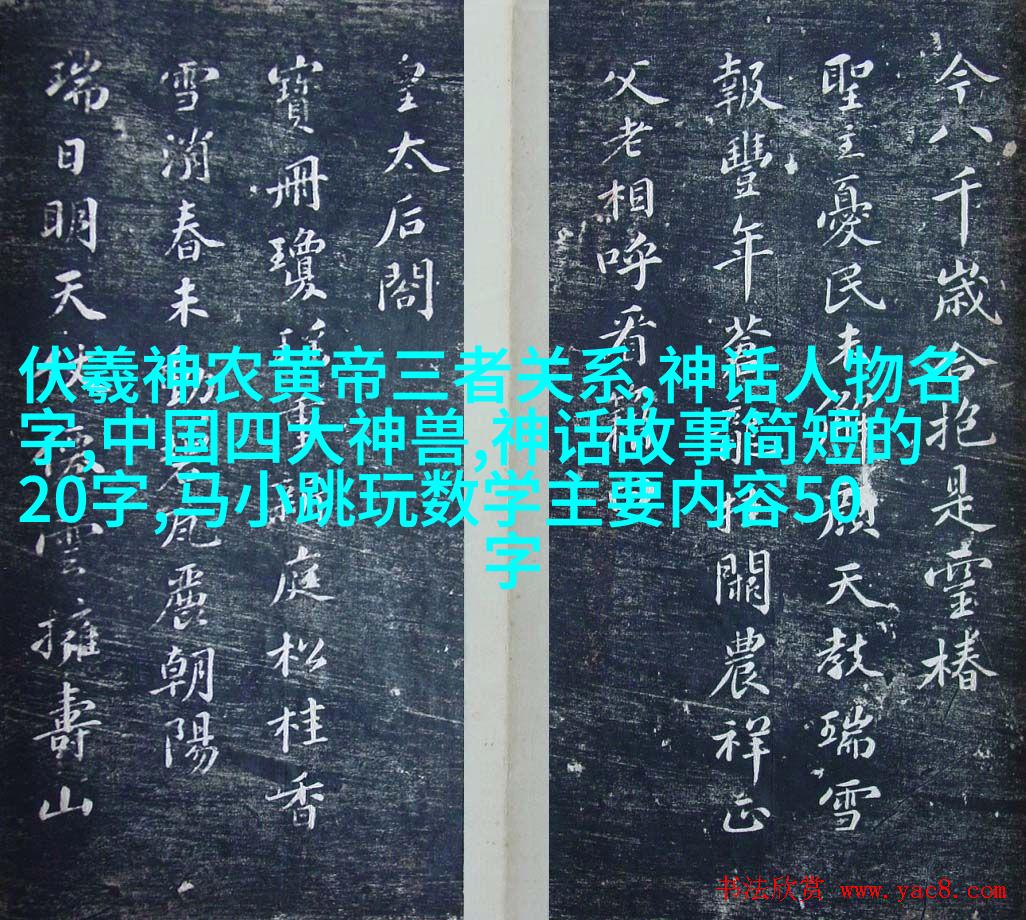 今八千歳合抱是靈椿
聖主憂民未解顏天教瑞雪
報豐年蒼龍掛闕農祥正
父老相呼看
皇太后閣
寶冊瓊瑤重庭松桂香
雪消春未動碧瓦麗朝陽
瑞日明天仗雲擁壽山
伏羲神农黄帝三者关系,神话人物名
字,中国四大神兽,神话故事简短的
20字,马小跳玩数学主要内容50
字
书法欣赏 www.yac8.com